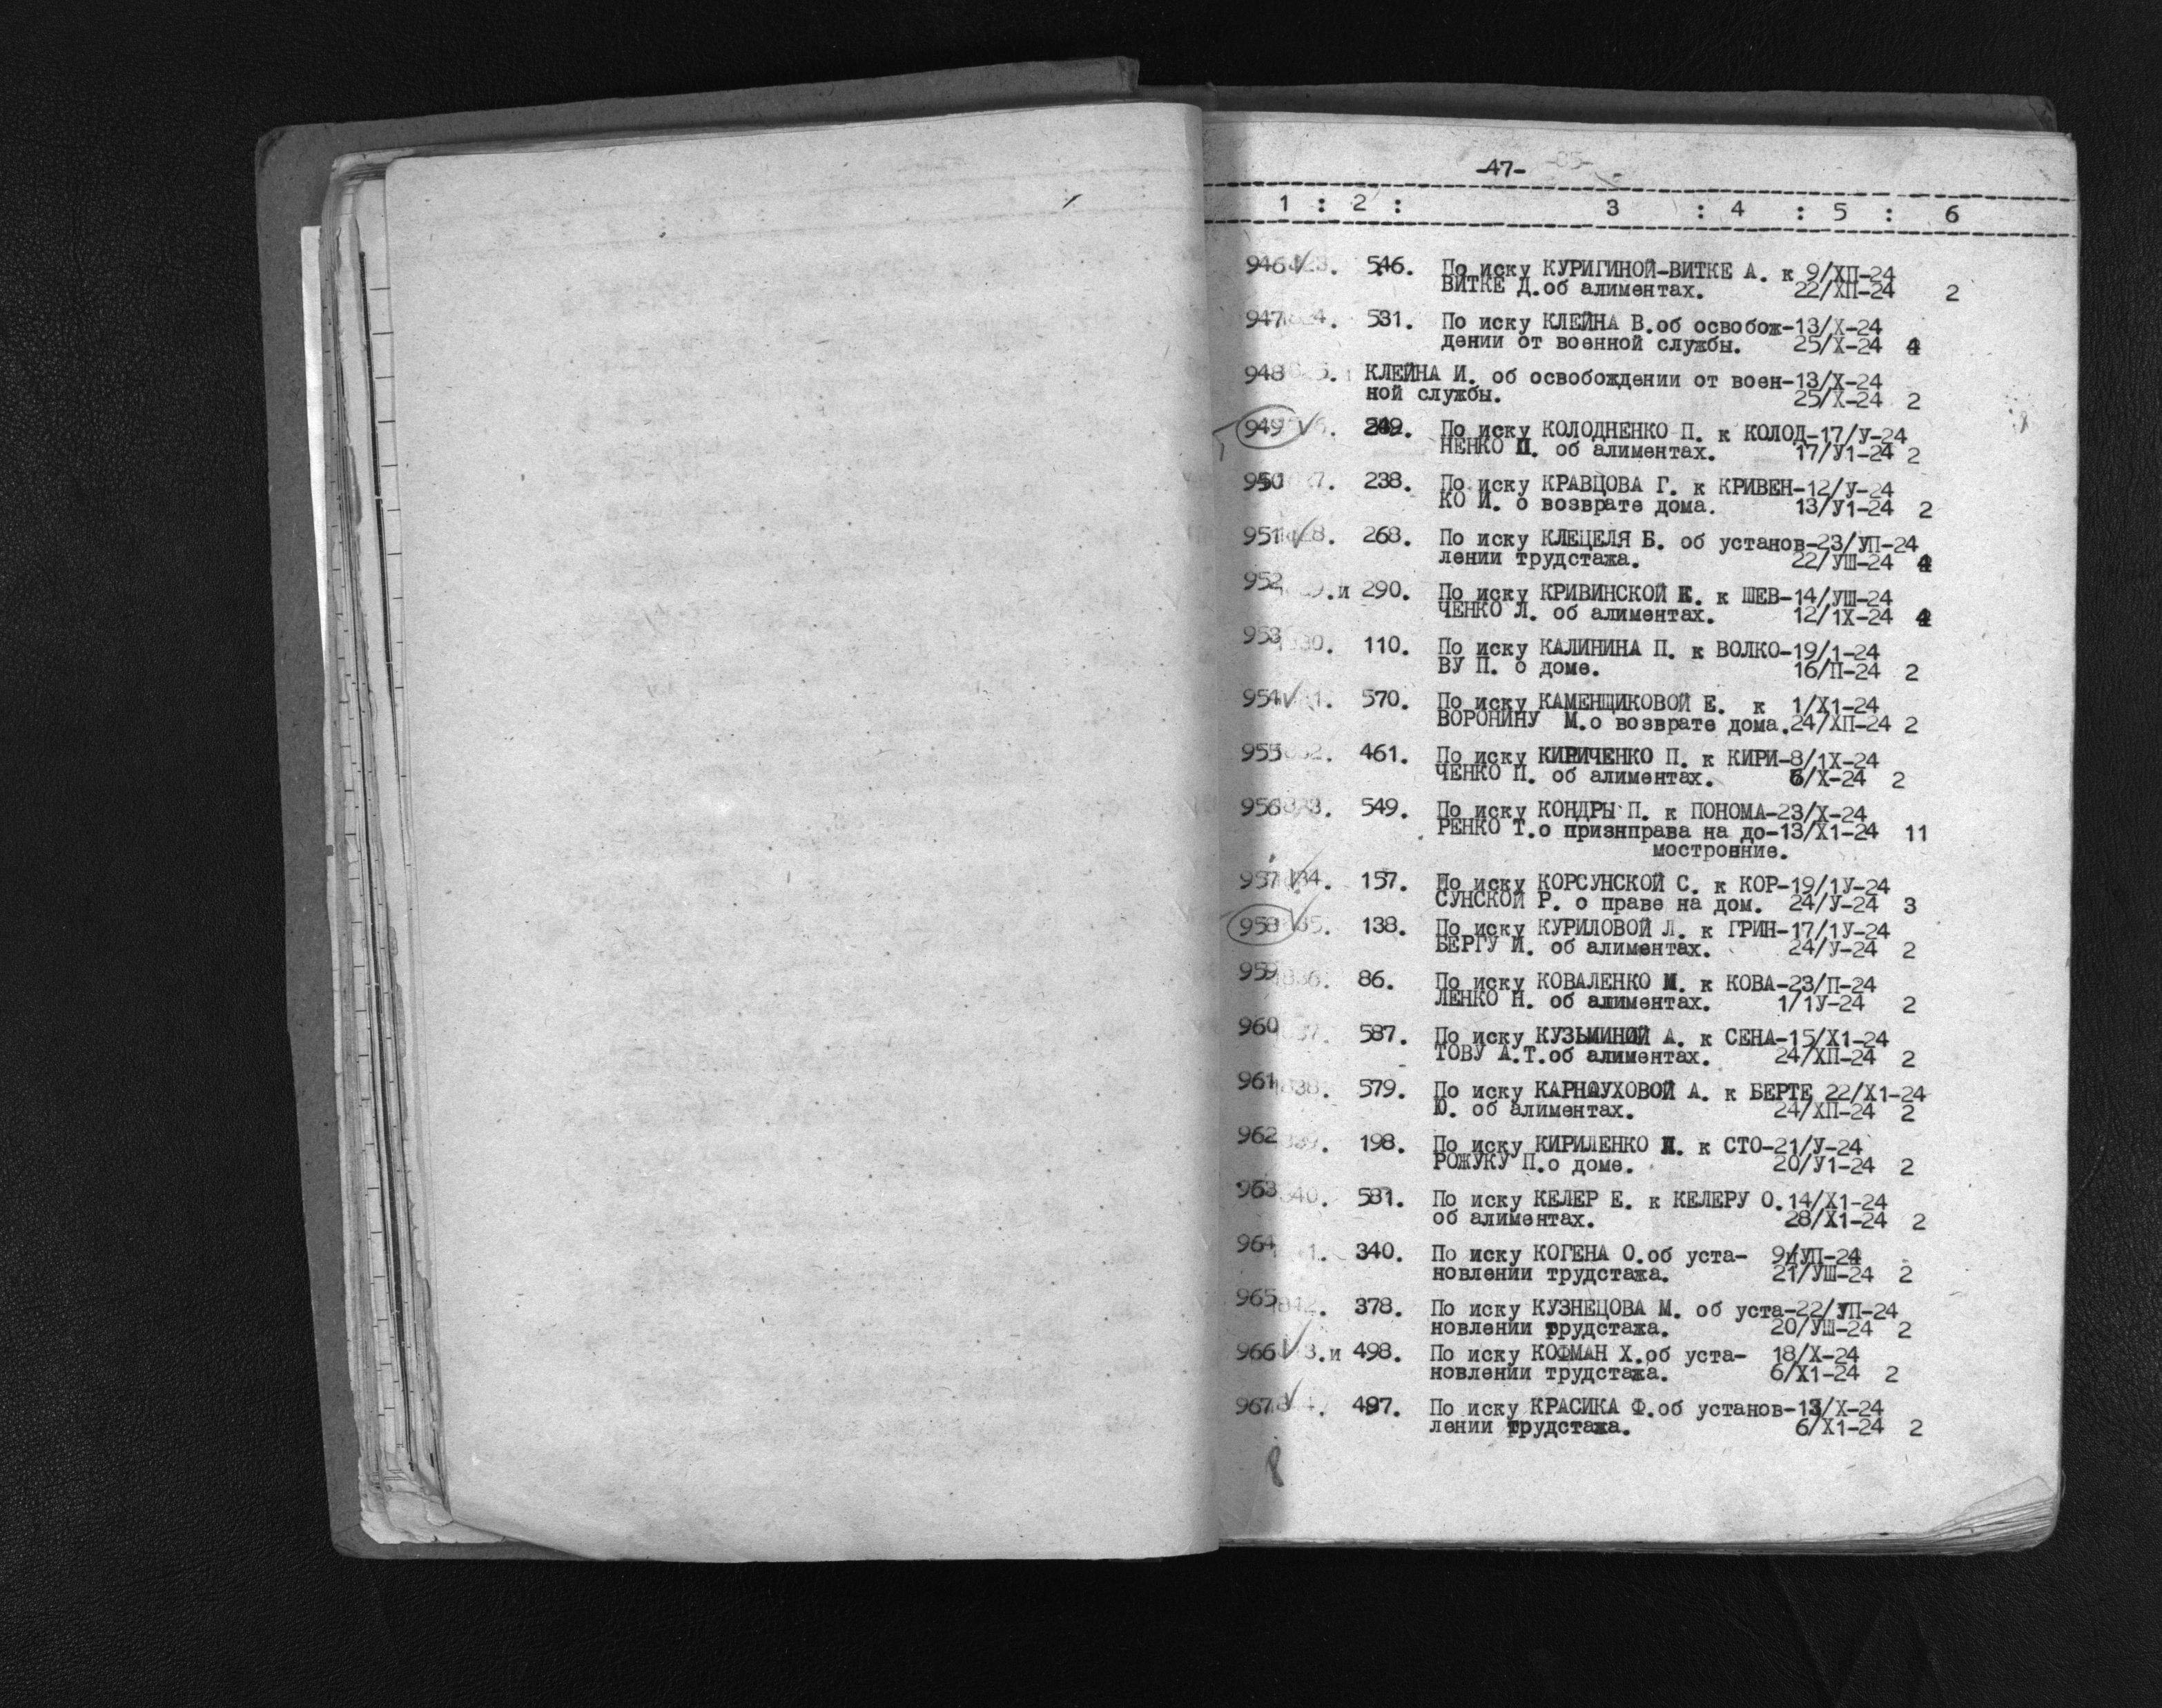 -47-
1 : 2 : 3 : 4 : 5 : 6
946 546. По иску КУРИГИНОЙ-ВИТКЕ А. к 9/ХП-24
ВИТКЕ Д.об алиментах. 22/ХП-24 2
947 531. По иску КЛЕЙНА В.об освобож-13/Х-24
дении от военной службы. 25/Х-24 4
948 КЛЕЙНА И. об освобождении от воен-13/Х-24
ной службы. 25/Х-24 2
949 249. По иску КОЛОДНЕНКО П. к КОЛОД-17/У-24
НЕНКО П. об алиментах. 17/У1-24 2
950 238. По иску КРАВЦОВА Г. к КРИВЕН-12/У-24
КО И. о возврате дома. 13/У1-24 2
951 268. По иску КЛЕЦЕЛЯ Б. об установ-23/УП-24
лении трудстажа. 22/УШ-24 4
952 и 290. По иску КРИВИНСКОЙ Е. к ШЕВ-14/УШ-24
ЧЕНКО Л. об алиментах. 12/1Х-24 4
953 110. По иску КАЛИНИНА П. к ВОЛКО-19/1-24
ВУ П. о доме. 16/П-24 2
954 570. По иску КАМЕНЩИКОВОЙ Е. к 1/Х1-24
ВОРОНИНУ М.о возврате дома.24/ХП-24 2
955 461. По иску КИРИЧЕНКО П. к КИРИ-8/1Х-24
ЧЕНКО П. об алиментах. 6/Х-24 2
956 549. По иску КОНДРЫ П. к ПОНОМА-23/Х-24
РЕНКО Т.о призн права на до-13/Х1-24 11
мостроение.
957 157. По иску КОРСУНСКОЙ С. к КОР-19/1У-24
СУНСКОЙ Р. о праве на дом. 24/У-24 3
958 138. По иску КУРИЛОВОЙ Л. к ГРИН-17/1У-24
БЕРГУ И. об алиментах. 24/У-24 2
959 86. По иску КОВАЛЕНКО М. к КОВА-23/П-24
ЛЕНКО Н. об алиментах. 1/1У-24 2
960 587. По иску КУЗЬМИНОЙ А. к СЕНА-15/Х1-24
ТОВУ А.Т.об алиментах. 24/ХП-24 2
961 579. По иску КАРНАУХОВОЙ А. к БЕРТЕ 22/Х1-24
Ю. об алиментах. 24/ХП-24 2
962 198. По иску КИРИЛЕНКО И. к СТО-21/У-24
РОЖУКУ П.о доме. 20/У1-24 2
963 581. По иску КЕЛЕР Е. к КЕЛЕРУ О.14/Х1-24
об алиментах. 28/Х1-24 2
964 340. По иску КОГЕНА О.об уста- 9/УП-24
новлении трудстажа. 21/УШ-24 2
965 378. По иску КУЗНЕЦОВА М. об уста-22/УП-24
новлении трудстажа. 20/УШ-24 2
966 и 498. По иску КОФМАН Х.об уста- 18/Х-24
новлении трудстажа. 6/Х1-24 2
967 497. По иску КРАСИКА Ф.об установ-13/Х-24
лении трудстажа. 6/Х1-24 2
8